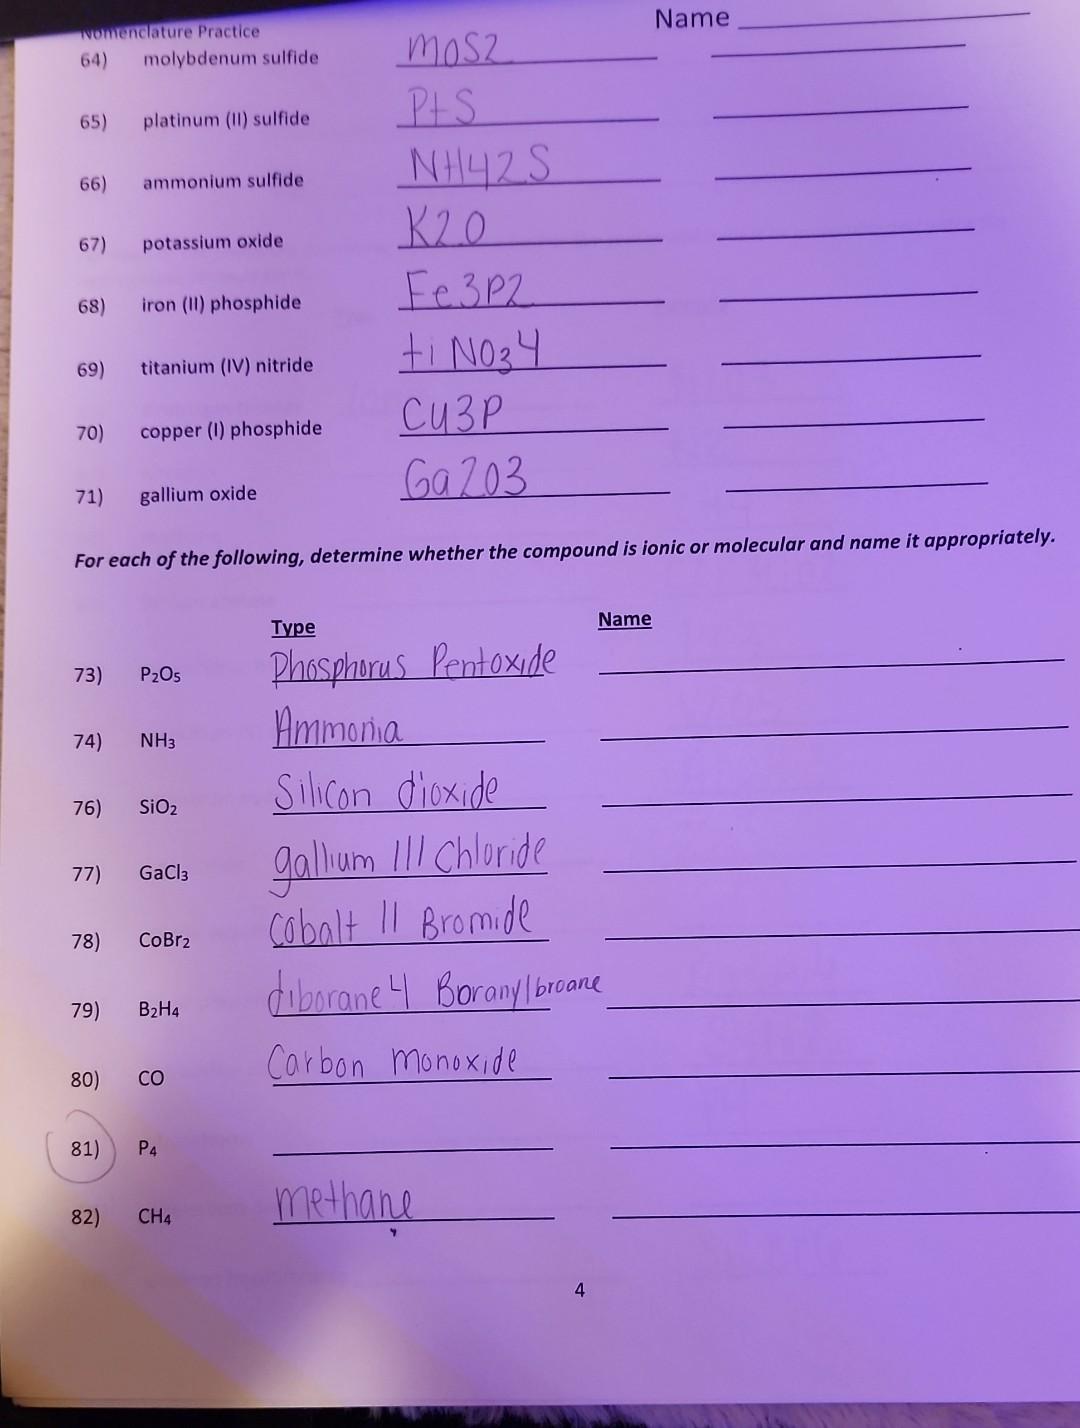 Nomenclature Practice Name
64) molybdenum sulfide MOS2
65) platinum (II) sulfide PtS
66) ammonium sulfide NH42S
67) potassium oxide K2O
68) iron (II) phosphide Fe3P2
69) titanium (IV) nitride ti NO₃4
70) copper (I) phosphide Cu3P
71) gallium oxide Ga2O3
For each of the following, determine whether the compound is ionic or molecular and name it appropriately.
Type Name
73) P₂O₅ Phosphorus Pentoxide
74) NH₃ Ammonia
76) SiO₂ Silicon dioxide
77) GaCl₃ gallium III Chloride
78) CoBr₂ Cobalt II Bromide
79) B₂H₄ diborane 4 Boranylbroane
80) CO Carbon monoxide
81) P₄
82) CH₄ methane
4